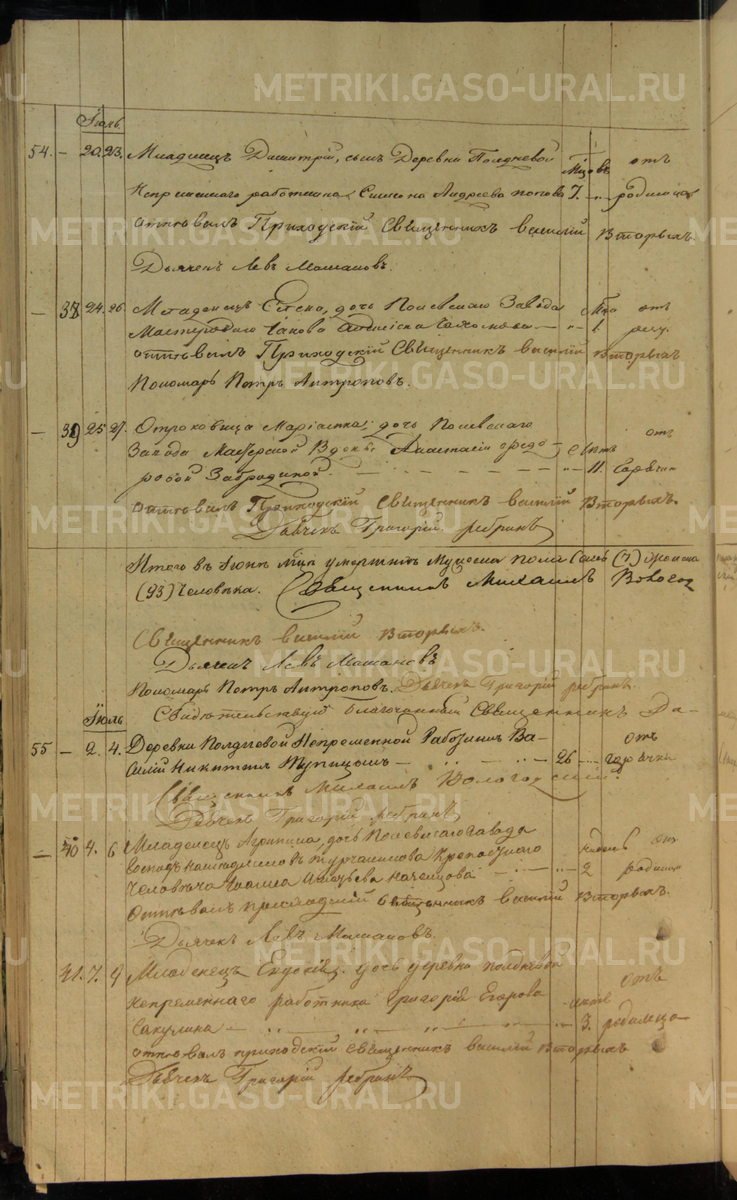 Июнь
54. — 20. 23. Младенец Димитрий, сын Деревни Полдневой
Мцовъ отъ
Непременнаго работника Симеона Андреева попова 7. родимца
отпевалъ Приходскій Священникъ василій Вторыхъ.
Дьячекъ Левъ Мошановъ.
— 38 24. 26. Младенецъ Елена, дочь Полевскаго Завода отъ
Мастероваго Iакова 1
отпевалъ Приходскій Священникъ василій Вторыхъ
Пономарь Петръ Антроповъ.
— 39 25 27. Отроковица Маріамна, дочь Полевскаго отъ
Завода Мастерской Вдовы Анастасіи Федо- летъ
ровой — 11 Горячки
отпевалъ Приходскій Священникъ василій Вторыхъ.
Дьячекъ Григорій ребринъ
Итого въ Iюне Мце умершихъ Мужеска пола (7) Женска
(93) Человека. Священникъ Михаилъ Вологод
Священникъ василій Вторыхъ.
Дьячекъ Левъ Мошановъ
Пономарь Петръ Антроповъ. Дьячекъ Григорій ребринъ.
Свидетельствовалъ благочинный Священникъ
Iюль
55 — 2. 4. Деревни Полдневой Непременной Работникъ Ва- отъ
силій Никитинъ — 26 горячки
Священникъ Михаилъ Вологодский.
Дьячекъ Григорій ребринъ
— 40 4. 6 Младенецъ Агрипина, дочь Полевскаго Завода отъ
Господъ наследниковъ турчанинова Крепостнаго недель
Человека 2 родимца
Отпевалъ приходскій священникъ василій Вторыхъ.
Дьячекъ Левъ Мошановъ.
41. 7. 9 Младенецъ Евдокія, дочь деревни полдневой отъ
непременнаго работника Григорія Егорова летъ
Сакулина — 3. родимца
отпевалъ приходскій священникъ василій Вторыхъ
Дьячекъ Григорій ребринъ
METRIKI.GASO-URAL.RU